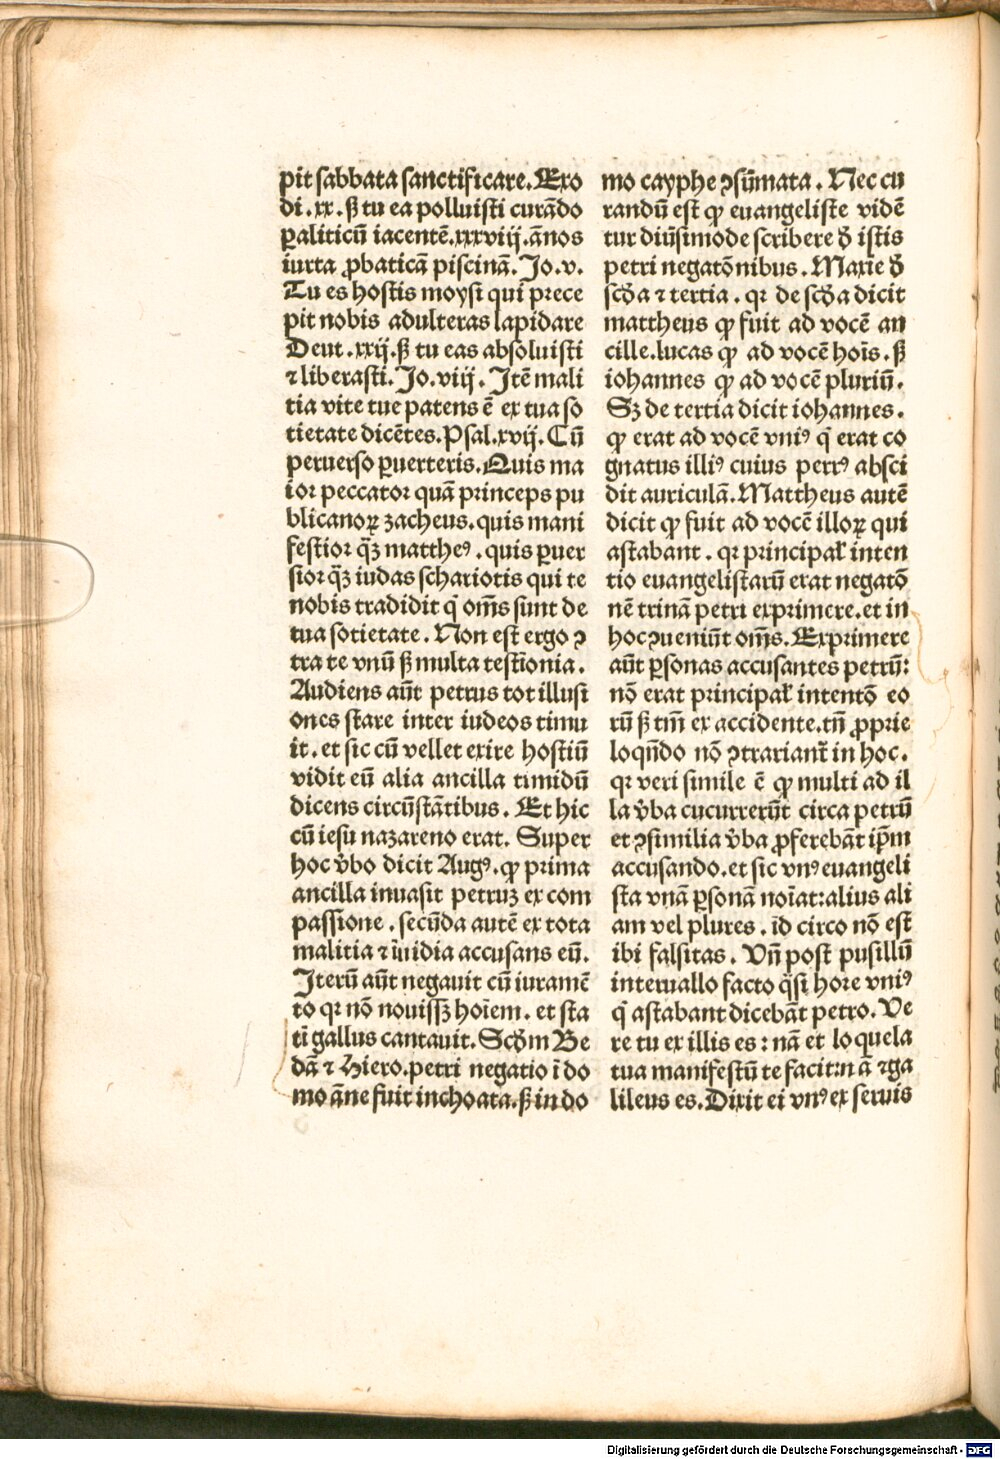 pit sabbata sanctificare. Exo
di. xx. ß tu ea polluisti curādo
ꝑaliticū iacentē. xxxviij. ānos
iuxta ꝓbaticā piscinā. Jo. v.
Tu es hostis moysi qui prece
pit nobis adulteras lapidare
Deut. xxij. ß tu eas absoluisti
⁊ liberasti. Jo. viij. Itē mali
tia vite tue patens ē ex tua so
tietate dicētes. Psal. xvij. Cū
peruerso ꝑuerteris. Quis ma
ior peccator quā princeps pu
blicanoꝝ zacheus. quis mani
festior q̄ꝫ mattheꝰ. quis ꝑuer
sior q̄ꝫ iudas schariotis qui te
nobis tradidit q̇ om̄s sunt de
tua sotietate. Non est ergo ꝯ
tra te vnū ß multa testīonia.
Audiens aūt petrus tot illusi
ones stare inter iudeos timu
it. et sic cū vellet exire hostiū
vidit eū alia ancilla timidū
dicens circūstātibus. Et hic
cū iesu nazareno erat. Super
hoc v̄bo dicit Augꝰ. ꝙ prima
ancilla inuasit petruꝫ ex com
passione. secūda autē ex tota
malitia ⁊ īuidia accusans eū.
Iterū aūt negauit cū iuramē
to qꝛ nō nouissꝫ hoīem. et sta
tī gallus cantauit. Scd̄m Be
dā ⁊ Hiero. petri negatio ī do
mo āne fuit inchoata. ß in do
mo cayphe ꝯsūmata. Nec cu
randū est ꝙ euangeliste vidē
tur diūsimode scribere d̄ istis
petri negatōnibus. Maxīe d̄
scd̄a ⁊ tertia. qꝛ de scd̄a dicit
mattheus ꝙ fuit ad vocē an
cille. lucas ꝙ ad vocē hoīs. ß
iohannes ꝙ ad vocē pluriū.
Sꝫ de tertia dicit iohannes.
ꝙ erat ad vocē vniꝰ q̇ erat co
gnatus illiꝰ cuius petrꝰ absci
dit auriculā. Mattheus autē
dicit ꝙ fuit ad vocē illoꝝ qui
astabant. qꝛ principal̄ inten
tio euangelistarū erat negatō
nē trinā petri exprimere. et in
hoc ꝯueniūt om̄s. Exprimere
aūt ꝑsonas accusantes petrū:
nō erat principal̄ intentō eo
rū ß tm̄ ex accidente. tn̄ ꝓprie
loqn̄do nō ꝯtrariant̄ in hoc.
qꝛ veri simile ē ꝙ multi ad il
la v̄ba cucurrerūt circa petrū
et ꝯsimilia v̄ba ꝓferebāt ip̄m
accusando. et sic vnꝰ euangeli
sta vnā ꝑsonā noīat: alius ali
am vel plures. īd circo nō est
ibi falsitas. Vn̄ post pusillū
interuallo facto q̄si hore vniꝰ
q̇ astabant dicebāt petro. Ve
re tu ex illis es: nā et loquela
tua manifestū te facit: nā ⁊ ga
lileus es. Dixit ei vnꝰ ex seruis
Digitalisierung gefördert durch die Deutsche Forschungsgemeinschaft - DFG